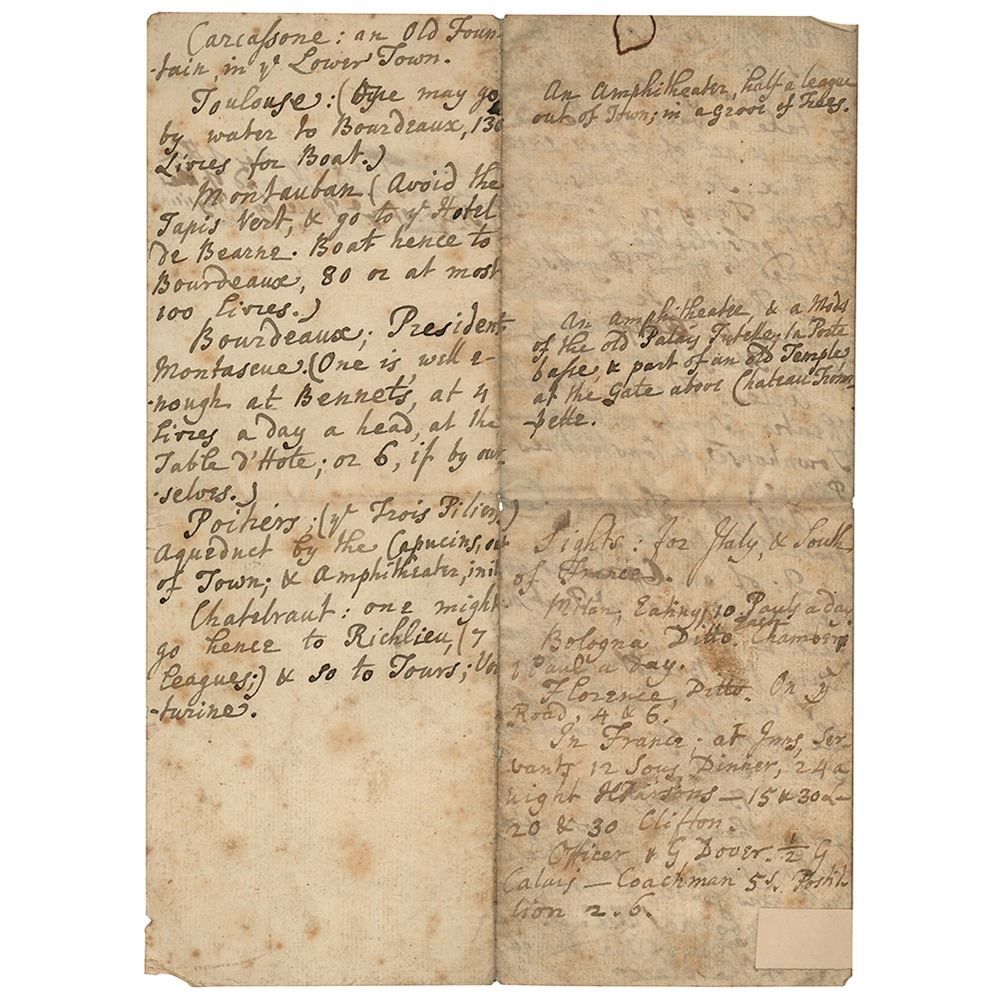 Carcassone: an Old Foun
-tain, in yͤ Lower Town.
Toulouse: (One may go
by water to Bourdeaux, 130
Livres for Boat.)
Montauban (Avoid the
Tapis Vert, & go to yͤ Hotel
de Bearne. Boat hence to
Bourdeaux, 80 or at most
100 Livres.)
Bourdeaux; President
Montascue. (One is well e-
-nough at Bennets, at 4
Livres a day a head, at the
Table d'Hote; or 6, if by our
-selves.)
Poitiers; (yͤ Trois Piliers)
Aqueduct by the Capucins, out
of Town; & Amphitheater, in it
Chatelraut: one might
go hence to Richlieu, (7
Leagues;) & so to Tours; Voi
-turine.
An Amphitheater, half a league
out of Town; in a Groove of Trees.
An Amphitheatre, & a Mods
of the old Palais Tutelle; la Porte
basse, & part of an old Temple
at the Gate above Chateau Trom
-pette.
Sights: for Italy, & South
of France.
Milan, Eating, 10 Pauls a day
each
Bologna Ditto. Chambers
1 Paul a day.
Florence, Ditto. On yͤ
Road, 4 & 6.
In France; at Inns, Ser-
vants 12 Sous Dinner, 24 a
night — 15 & 30
20 & 30 Clifton.
Officer 1 G Dover. ½ G
Calais — Coachman 5s. Postil-
lion 2.6.